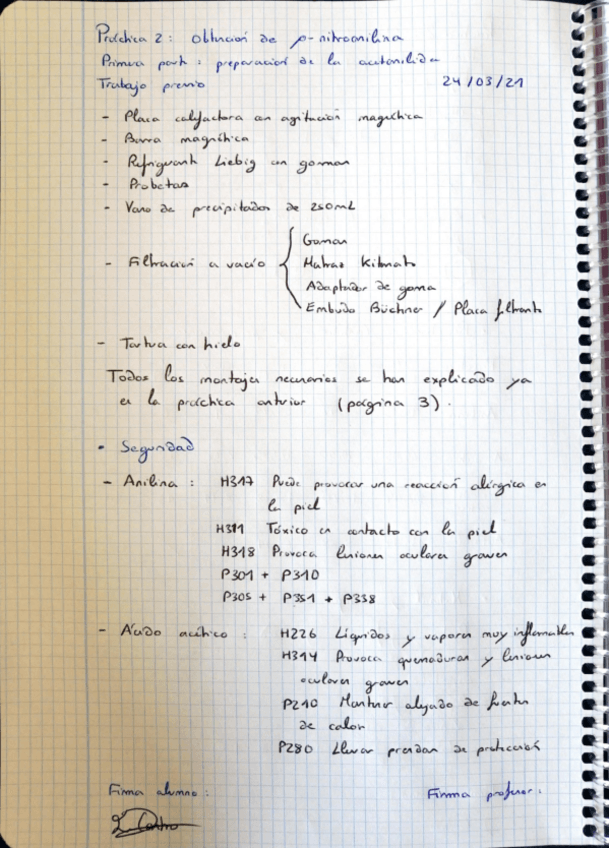 Práctica 2: Obtención de p-nitroanilina
Primera parte: preparación de la acetanilida
Trabajo previo 24/03/21
- Placa calefactora con agitación magnética
- Barra magnética
- Refrigerante Liebig con gomas
- Probetas
- Vaso de precipitados de 250mL
- Filtración a vacío {
Gomas
Matraz Kitasato
Adaptador de goma
Embudo Büchner / Placa filtrante
- Tartera con hielo
Todos los montajes necesarios se han explicado ya
en la práctica anterior (página 3).
• Seguridad
- Anilina: H317 Puede provocar una reacción alérgica en
la piel
H311 Tóxico en contacto con la piel
H318 Provoca lesiones oculares graves
P301 + P310
P305 + P351 + P338
- Ácido acético: H226 Líquidos y vapores muy inflamables
H314 Provoca quemaduras y lesiones
oculares graves
P210 Mantener alejado de fuentes
de calor
P280 Llevar prendas de protección
Firma alumno: Firma profesor:
L. Castro